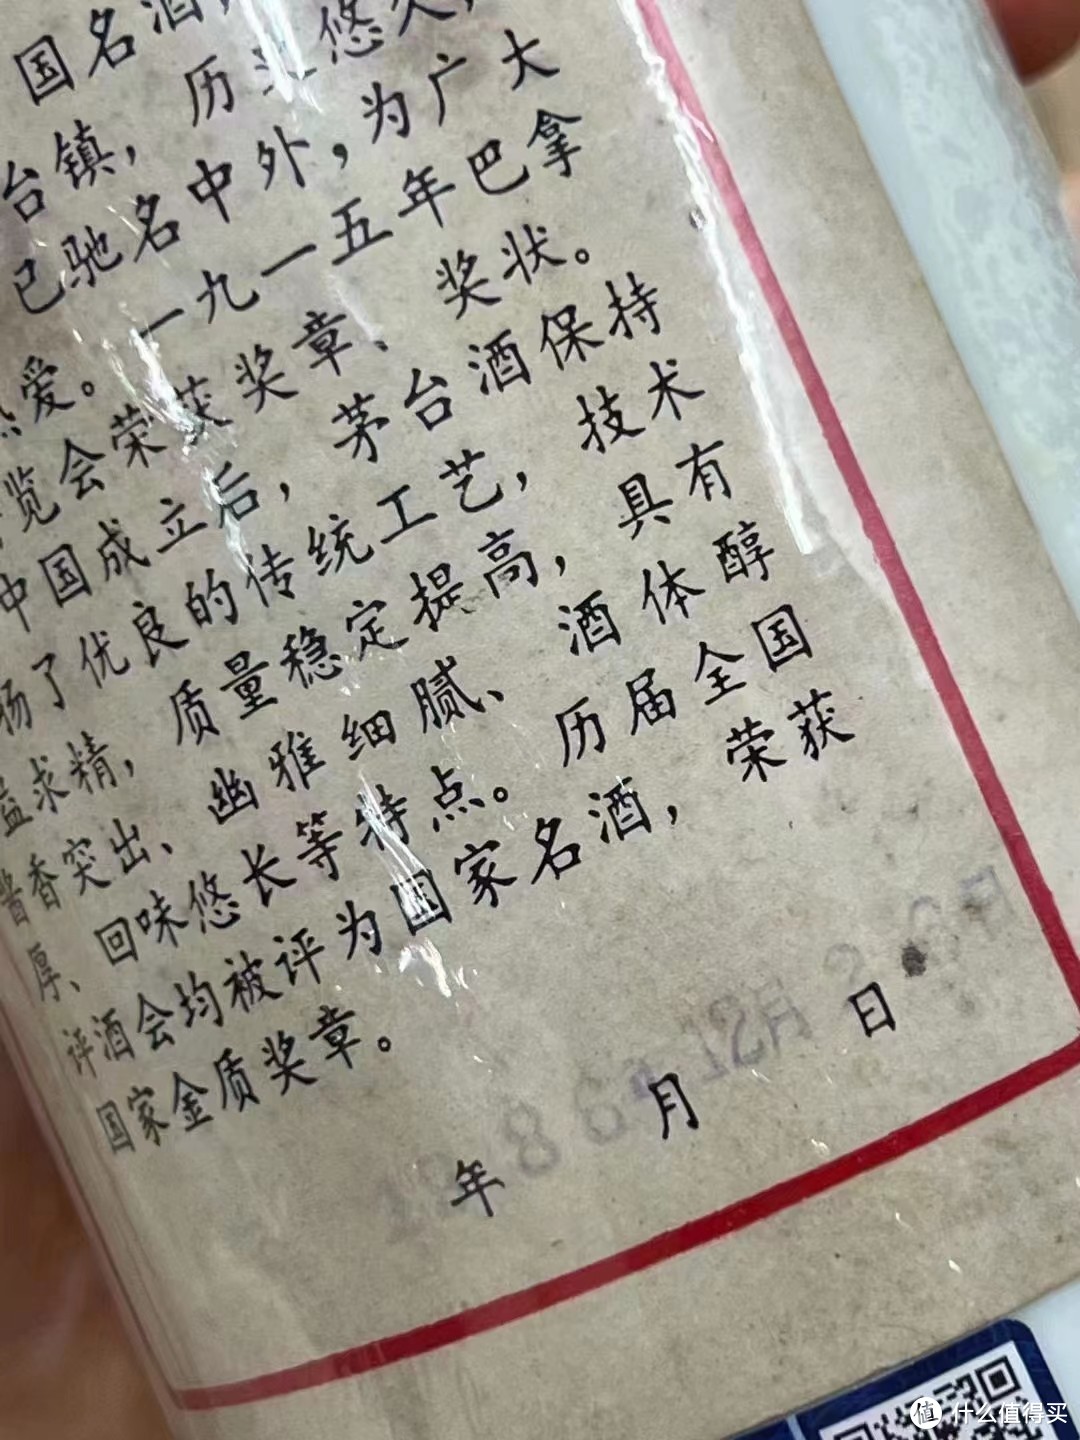 国名酒,
台镇, 历史悠久,
已驰名中外,为广大
热爱。一九一五年巴拿
览会荣获奖章、奖状。
中国成立后, 茅台酒保持
扬了优良的传统工艺, 技术
益求精, 质量稳定提高, 具有
酱香突出、幽雅细腻、酒体醇
厚、回味悠长等特点。历届全国
评酒会均被评为国家名酒, 荣获
国家金质奖章。
年 月 日
12月
值 什么值得买